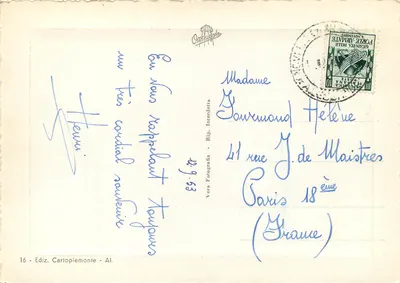 En vous rappelant toujours
un très cordial souvenir
Henri
12-9-53
Madame
Fourmond Hélène
41 rue J. de Maistres
Paris 18ème
(France)
Vera Fotografia - Rip. Interdetta
16 - Ediz. Cartopiemonte - Al.
GIORNATA DELLE
FORZE ARMATE